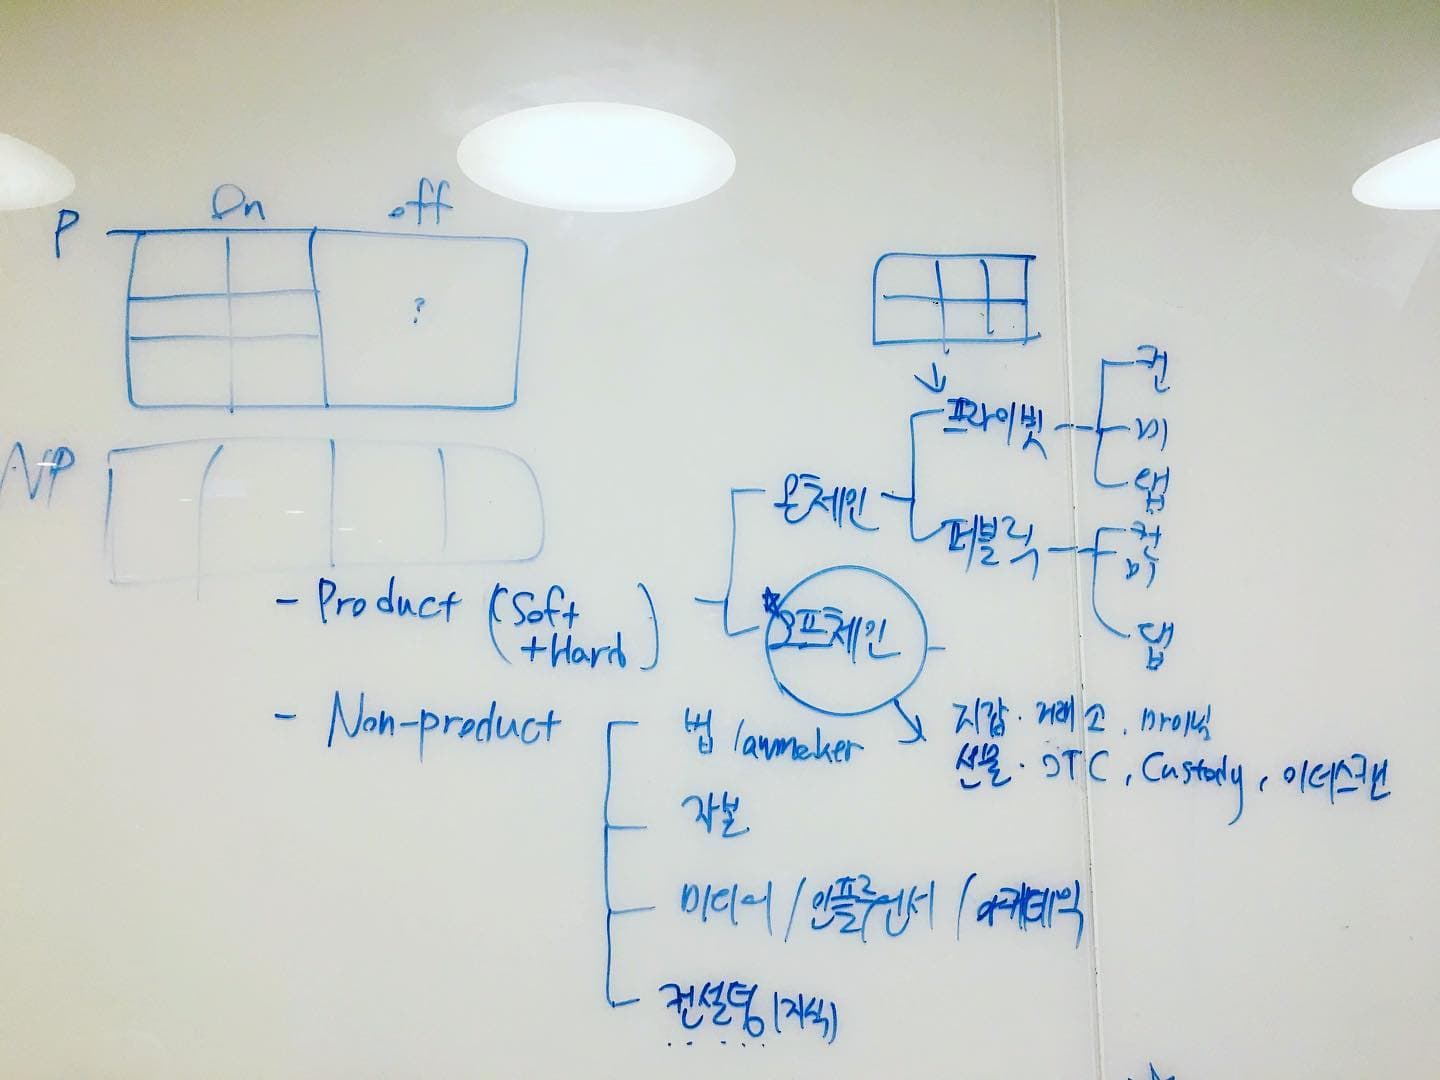 On off
P
?
NP
프라이빗
컨
미
댑
온체인
퍼블릭
컨
미
댑
- Product (Soft
+Hard)
오프체인
- Non-product
법 lawmaker
지갑. 거래소. 마이닝
선물. OTC, Custody, 이더스캔
자본
미디어 / 인플루언서 / 아카데믹
컨설팅 (지식)